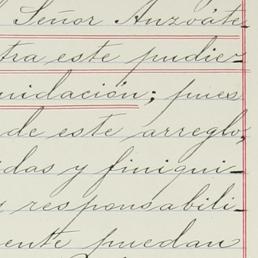 Señor Anzoáte-
tra este pudie-
uidación; pues
de este arreglo,
idas y finiqui-
y responsabili-
ente puedan